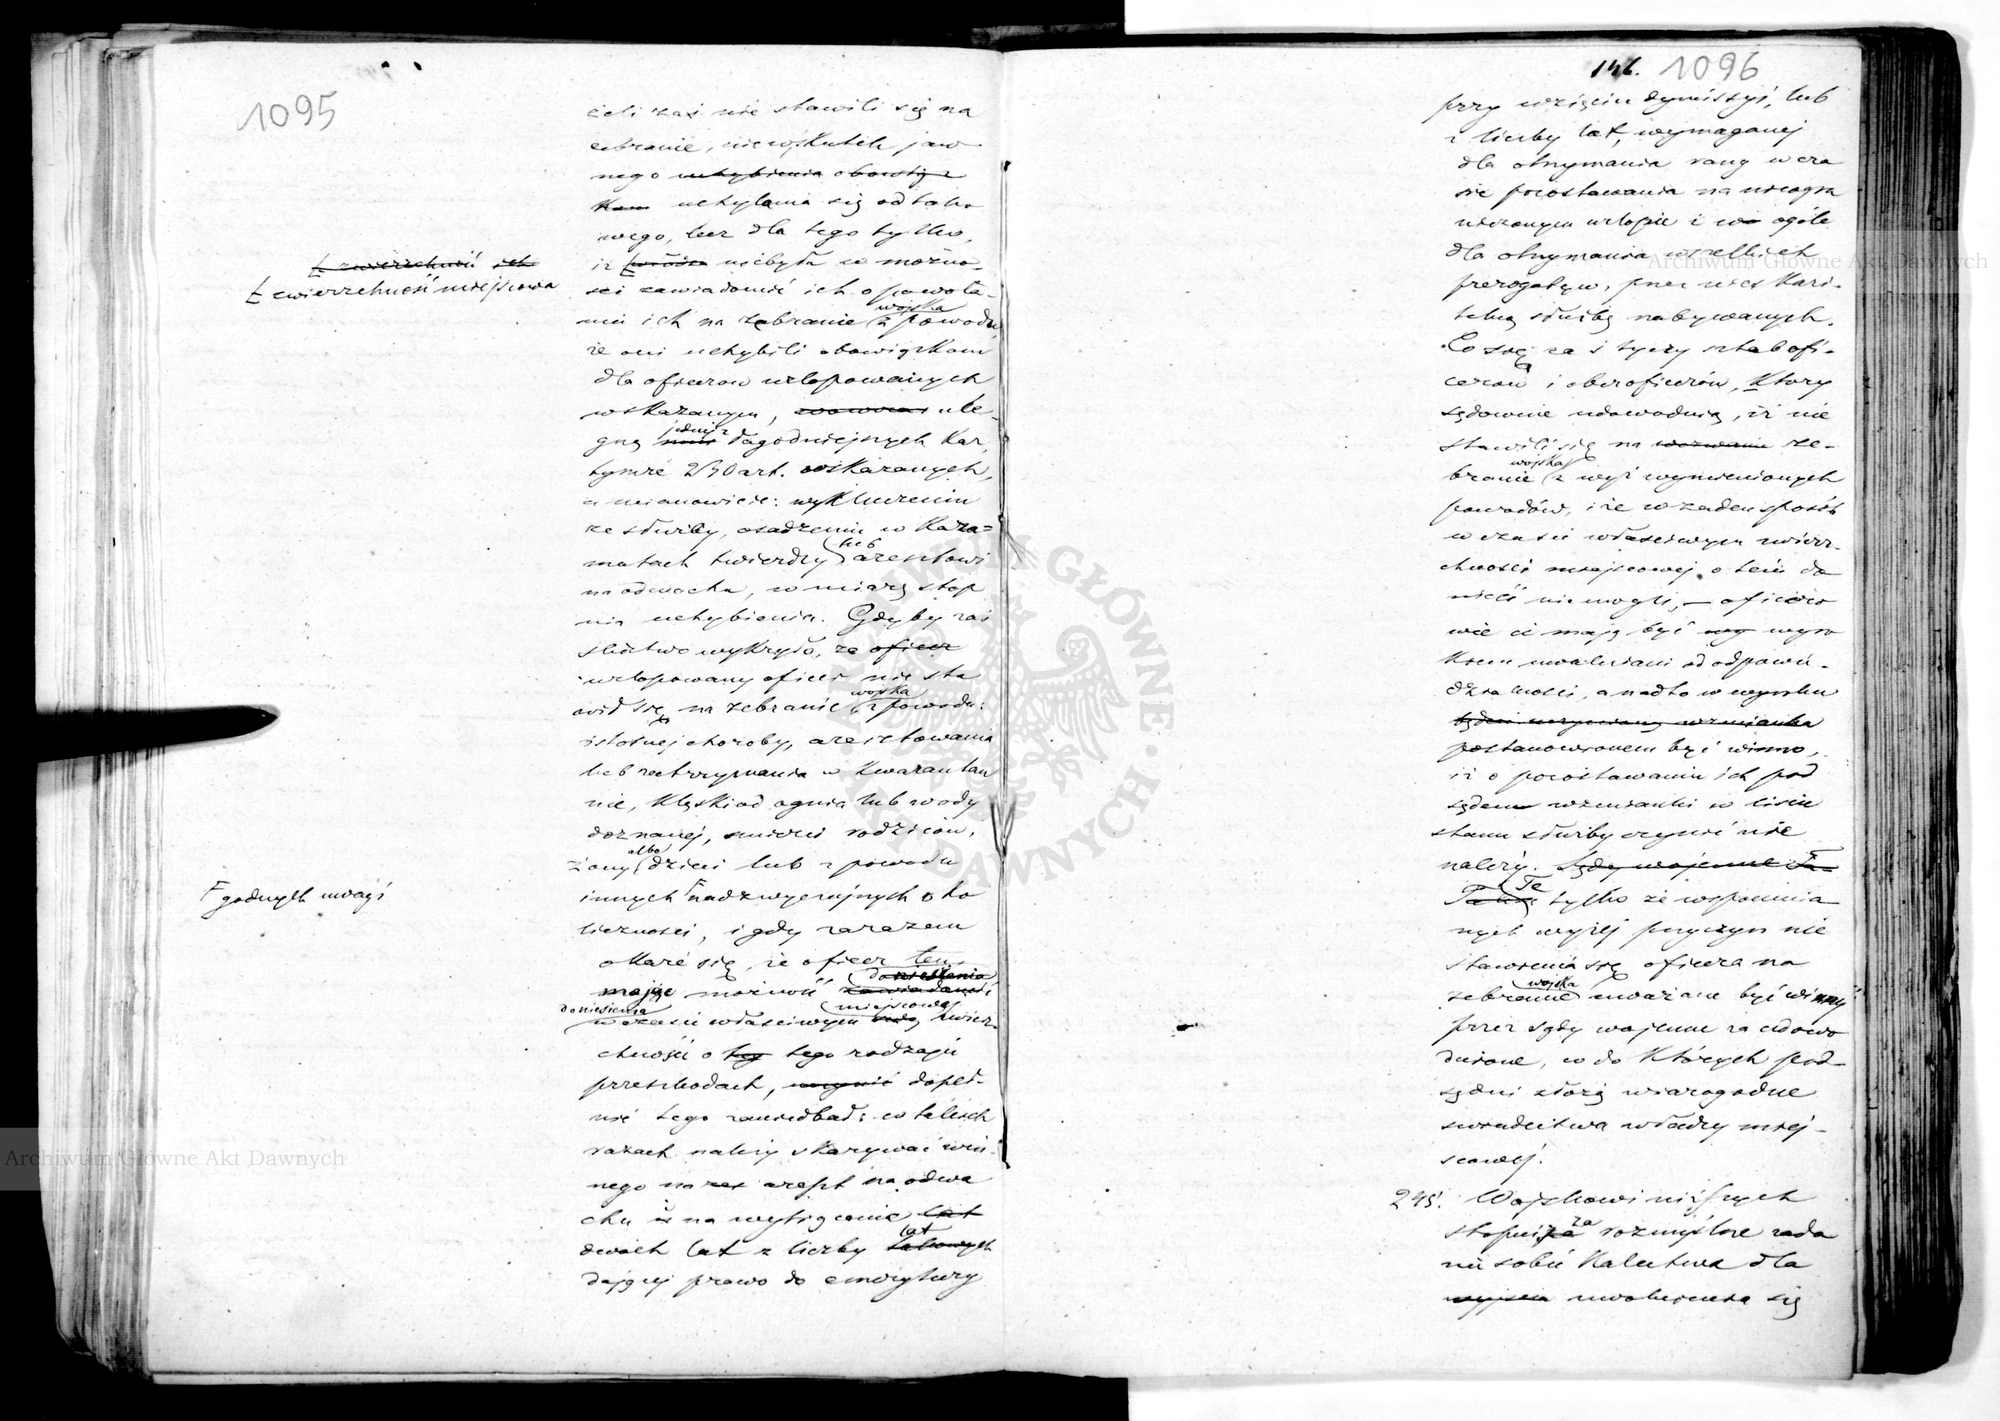 1095
żeli zaś nie stawili się na
zebranie, nie wskutek jaw
nego uchybienia obowiąz
kom uchylania się od tako
wego, lecz dla tego tylko,
Ł zwierzchność ich
iż Ł władza niebyła w możno-
Ł zwierzchność miejscowa
ści zawiadomić ich o powoła-
niu ich na zebranie wojska z powodu,
że oni uchybili obowiązkom
dla oficerów urlopowanych
wskazanym, ule-
gną jednej z łagodniejszych kar,
tymże 240 art. wskazanych,
a mianowicie: wykluczeniu
ze służby, osadzeniu w kaza-
matach twierdzy lub aresztowi
na odwachu, w miarę stop
nia uchybienia. Gdyby zaś
śledztwo wykryło, że oficer
urlopowany oficer nie sta
wił się na zebranie wojska z powodu:
istotnej choroby, aresztowania
lub zatrzymania w kwarantan
nie, klęski od ognia lub wody
doznanej, śmierci rodziców,
żony albo dzieci lub z powodu
F godnych uwagi
innych F nadzwyczajnych oko
liczności, i gdy zarazem
okaże się, że oficer ten
mając możność zawiadomić doniesienia
doniesienia w czasie właściwym miejscowej zwierz-
chności o tego rodzaju
przeszkodach, uczynić dopeł-
nić tego zaniedbał: w takich
razach należy skazywać win-
nego na areszt na odwa
chu i na wytrącenie lat
dwóch lat z liczby lat takowych
dającej prawo do emerytury
146. 1096
przy wzięciu dymissyi, lub
z liczby lat, wymaganej
dla otrzymania rang w cza
sie pozostawania na nieogra
niczonym urlopie i w ogóle
dla otrzymania wszelkich
prerogatyw, przez nieskazi-
telną służbę nabywanych.
Co się zaś tyczy sztabofi-
cerów i oberoficerów, którzy
sądownie udowodnią, iż nie
stawili się na wezwanie ze-
branie wojska z wyż wymienionych
powodów, i że w żaden sposób
w czasie właściwym zwierz-
chności miejscowej o tém do
nieść nie mogli, — oficero
wie ci mają być wyro
kiem uwalniani od odpowie-
dzialności, a nadto w wyroku
będzie uczynioną wzmianka
postanowionem być winno,
iż o pozostawaniu ich pod
sądem wzmianki w liście
stanu służby czynić nie
należy. Sądy wojenne Ta-
Te tylko ze wspomnia
nych wyżej przyczyn nie
stawienia się oficera na
zebranie wojska uważane być winny
przez sądy wojenne za udowo
dnione, co do których pod-
sądni złożą wiarogodne
świadectwa władzy miej-
scowej.
245. Wojskowi niższych
stopni za rozmyślne zada
nie sobie kalectwa dla
wyjścia uwolnienia się
Archiwum Główne Akt Dawnych
Archiwum Główne Akt Dawnych